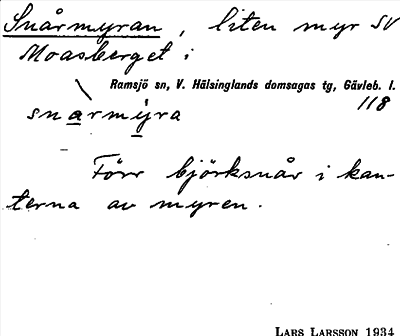 Snårmyran, liten myr SV
Moasberget i
Ramsjö sn, V. Hälsinglands domsagas tg, Gävleb. l.
118
snàrmýra
Förr björksnår i kan-
terna av myren.
LARS LARSSON 1934